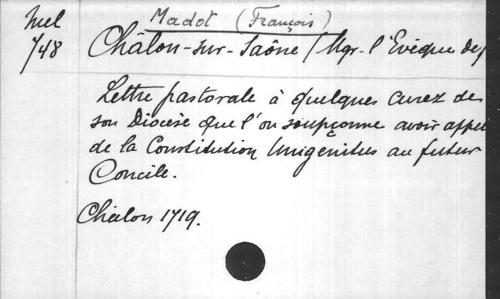 Mel
748
Madot (François)
Châlon-sur-Saône (Mgr. l'Evêque de)
Lettre pastorale à quelques curez de
son Diocèse que l'on soupçonne avoir appel
de la Constitution Unigenitus au futur
Concile.
Chalon 1719.